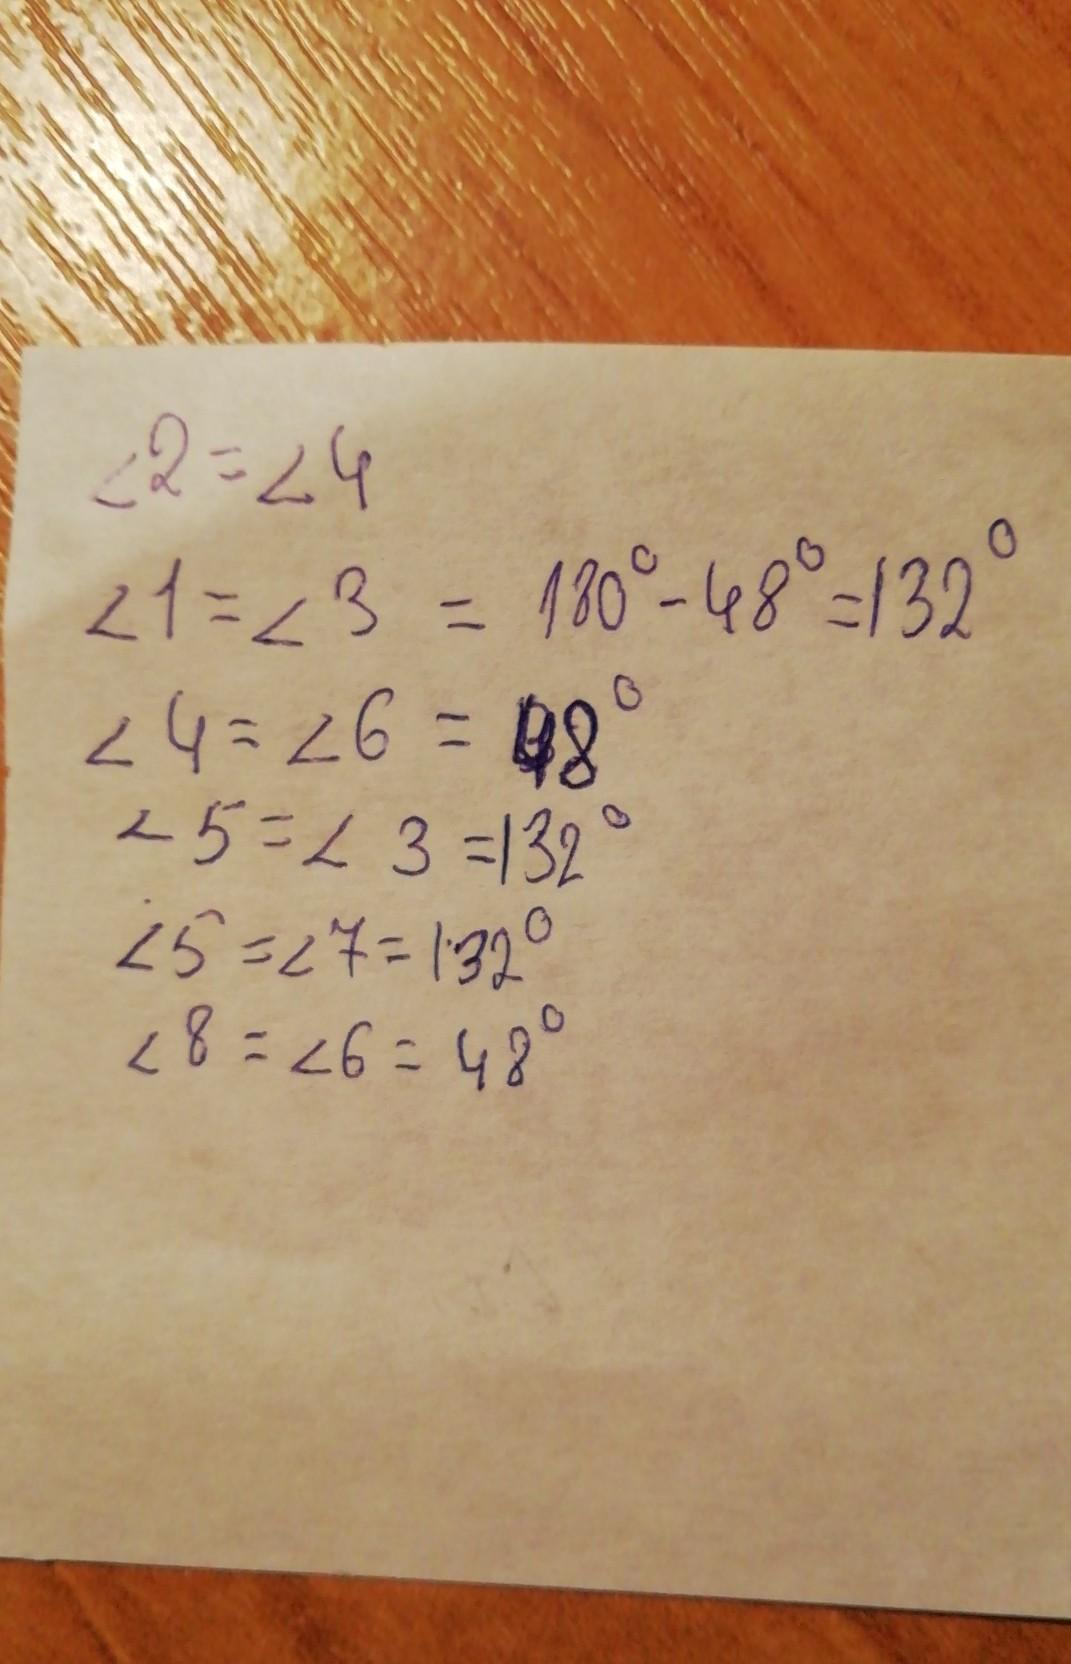 ∠2 = ∠4
∠1 = ∠3 = 180° - 48° = 132°
∠4 = ∠6 = 48°
∠5 = ∠3 = 132°
∠5 = ∠7 = 132°
∠8 = ∠6 = 48°